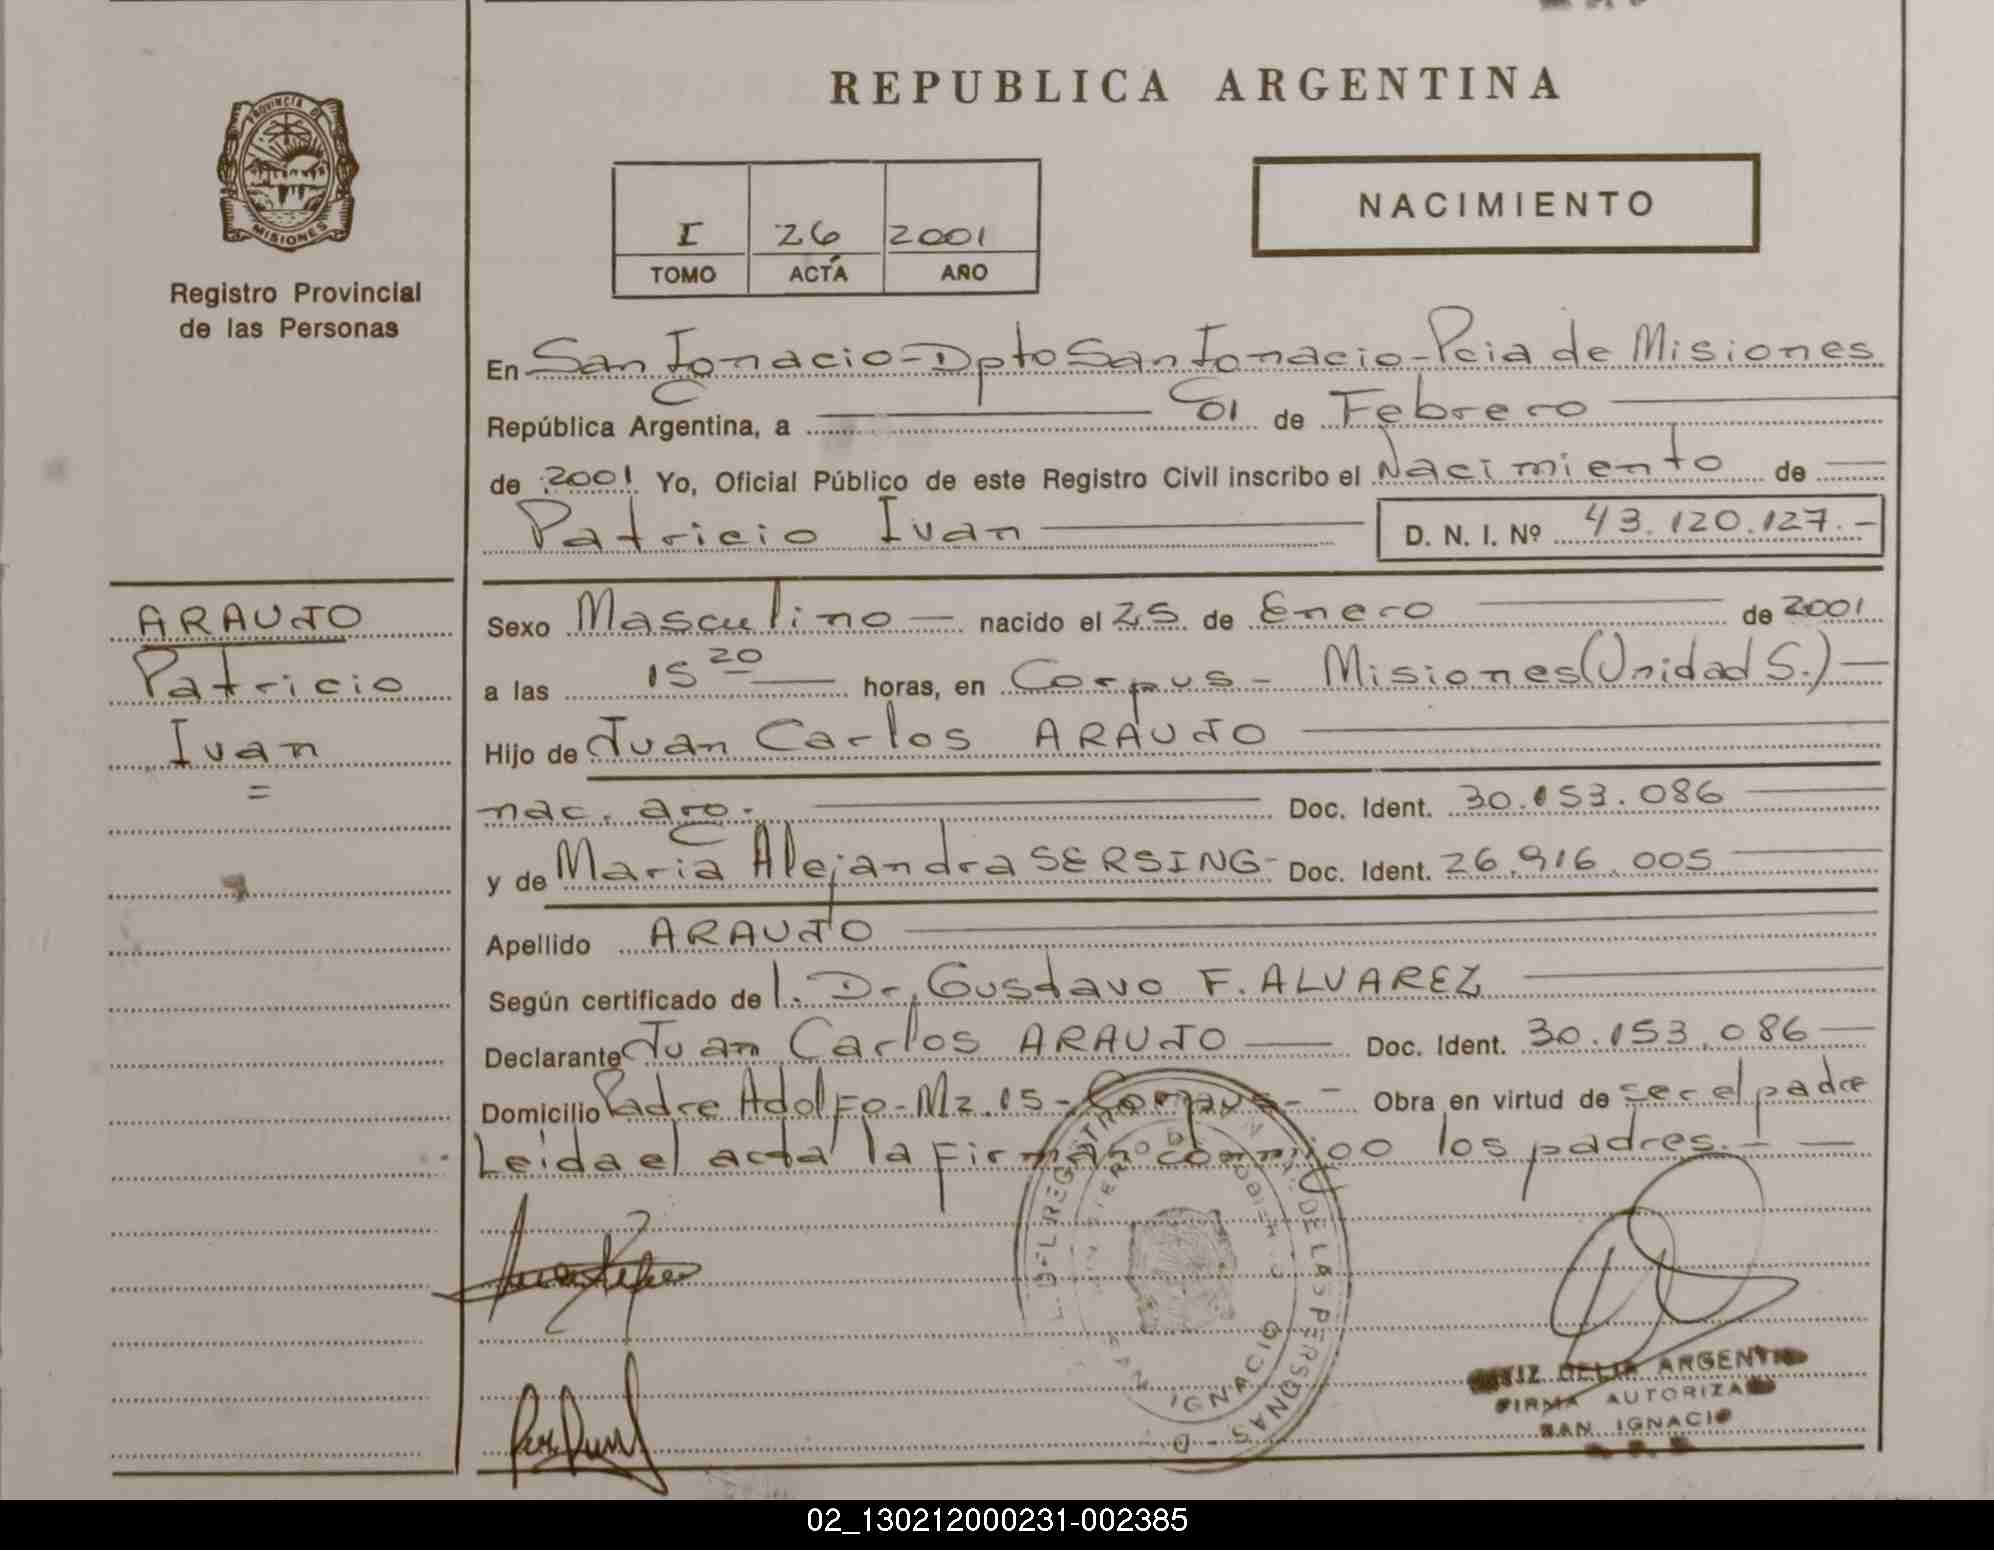 REPUBLICA ARGENTINA
PROVINCIA DE
MISIONES
Registro Provincial
de las Personas
NACIMIENTO
I 26 2001
TOMO ACTA AÑO
En San Ignacio - Dpto San Ignacio - Pcia de Misiones
República Argentina, a 01 de Febrero
de 2001 Yo, Oficial Público de este Registro Civil inscribo el Nacimiento de
Patricio Ivan D. N. I. Nº 43.120.127.-
ARAUJO
Patricio
Ivan
=
Sexo Masculino — nacido el 25 de Enero de 2001
a las 15 20 horas, en Corpus - Misiones (Unidad S.) —
Hijo de Juan Carlos ARAUJO
nac. arg. Doc. Ident. 30.153.086
y de Maria Alejandra SERSING - Doc. Ident. 26.916.005
Apellido ARAUJO
Según certificado de l. Dr. Gustavo F. ALVAREZ
Declarante Juan Carlos ARAUJO — Doc. Ident. 30.153.086 —
Domicilio Padre Adolfo - Mz. 15 - Corpus - - Obra en virtud de ser el padre
Leida el acta la firman conmigo los padres. - —
DEL REGISTRO DE LAS PERSONAS
SAN IGNACIO
DELIA ARGENTINA
FIRMA AUTORIZADA
SAN IGNACIO
02_130212000231-002385